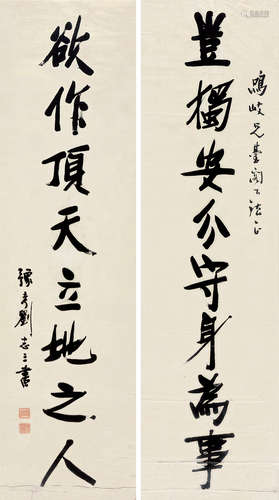 鴻岐兄台阁下法正
豈獨安分守身為事
欲作頂天立地之人
劉志三書